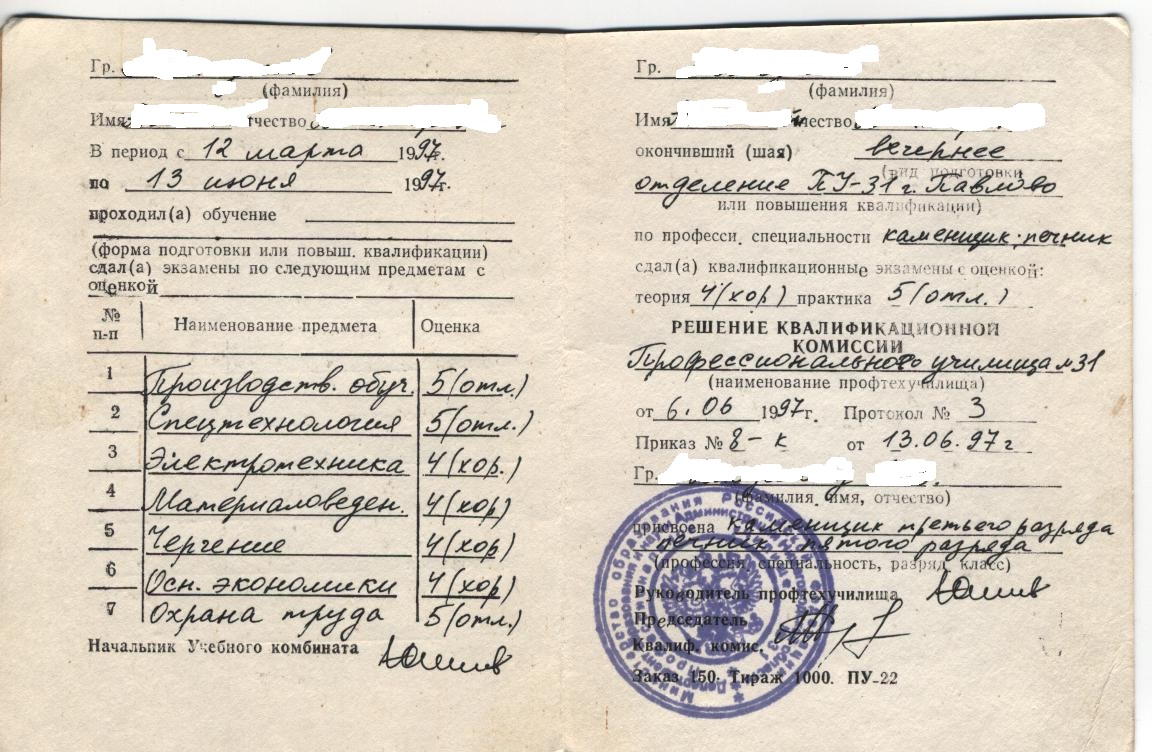 Гр.
(фамилия)
Имя тчество
В период с 12 марта 1997г.
по 13 июня 1997г.
проходил(а) обучение
(форма подготовки или повыш. квалификации)
сдал(а) экзамены по следующим предметам с
оценкой
№ п-п Наименование предмета Оценка
1 Производств. обуч. 5(отл.)
2 Спецтехнология 5(отл.)
3 Электротехника 4(хор.)
4 Материаловеден. 4(хор)
5 Черчение 4(хор)
6 Осн. экономики 4(хор)
7 Охрана труда 5(отл.)
Начальник Учебного комбината
Гр.
(фамилия)
Имя чество
окончивший (шая) вечернее
(вид подготовки
отделение ПУ-31 г. Павлово
или повышения квалификации)
по професси. специальности каменщик-печник
сдал(а) квалификационные экзамены с оценкой:
теория 4(хор) практика 5(отл.)
РЕШЕНИЕ КВАЛИФИКАЦИОННОЙ
КОМИССИИ
Профессионального училища №31
(наименование профтехучилища)
от 6.06 1997г. Протокол № 3
Приказ № 8-к от 13.06.97г
Гр.
(фамилия, имя, отчество)
присвоена каменщик третьего разряда
печник пятого разряда
(профессия, специальность, разряд, класс)
Руководитель профтехучилища
Председатель
Квалиф. комис.
Заказ 150. Тираж 1000. ПУ-22